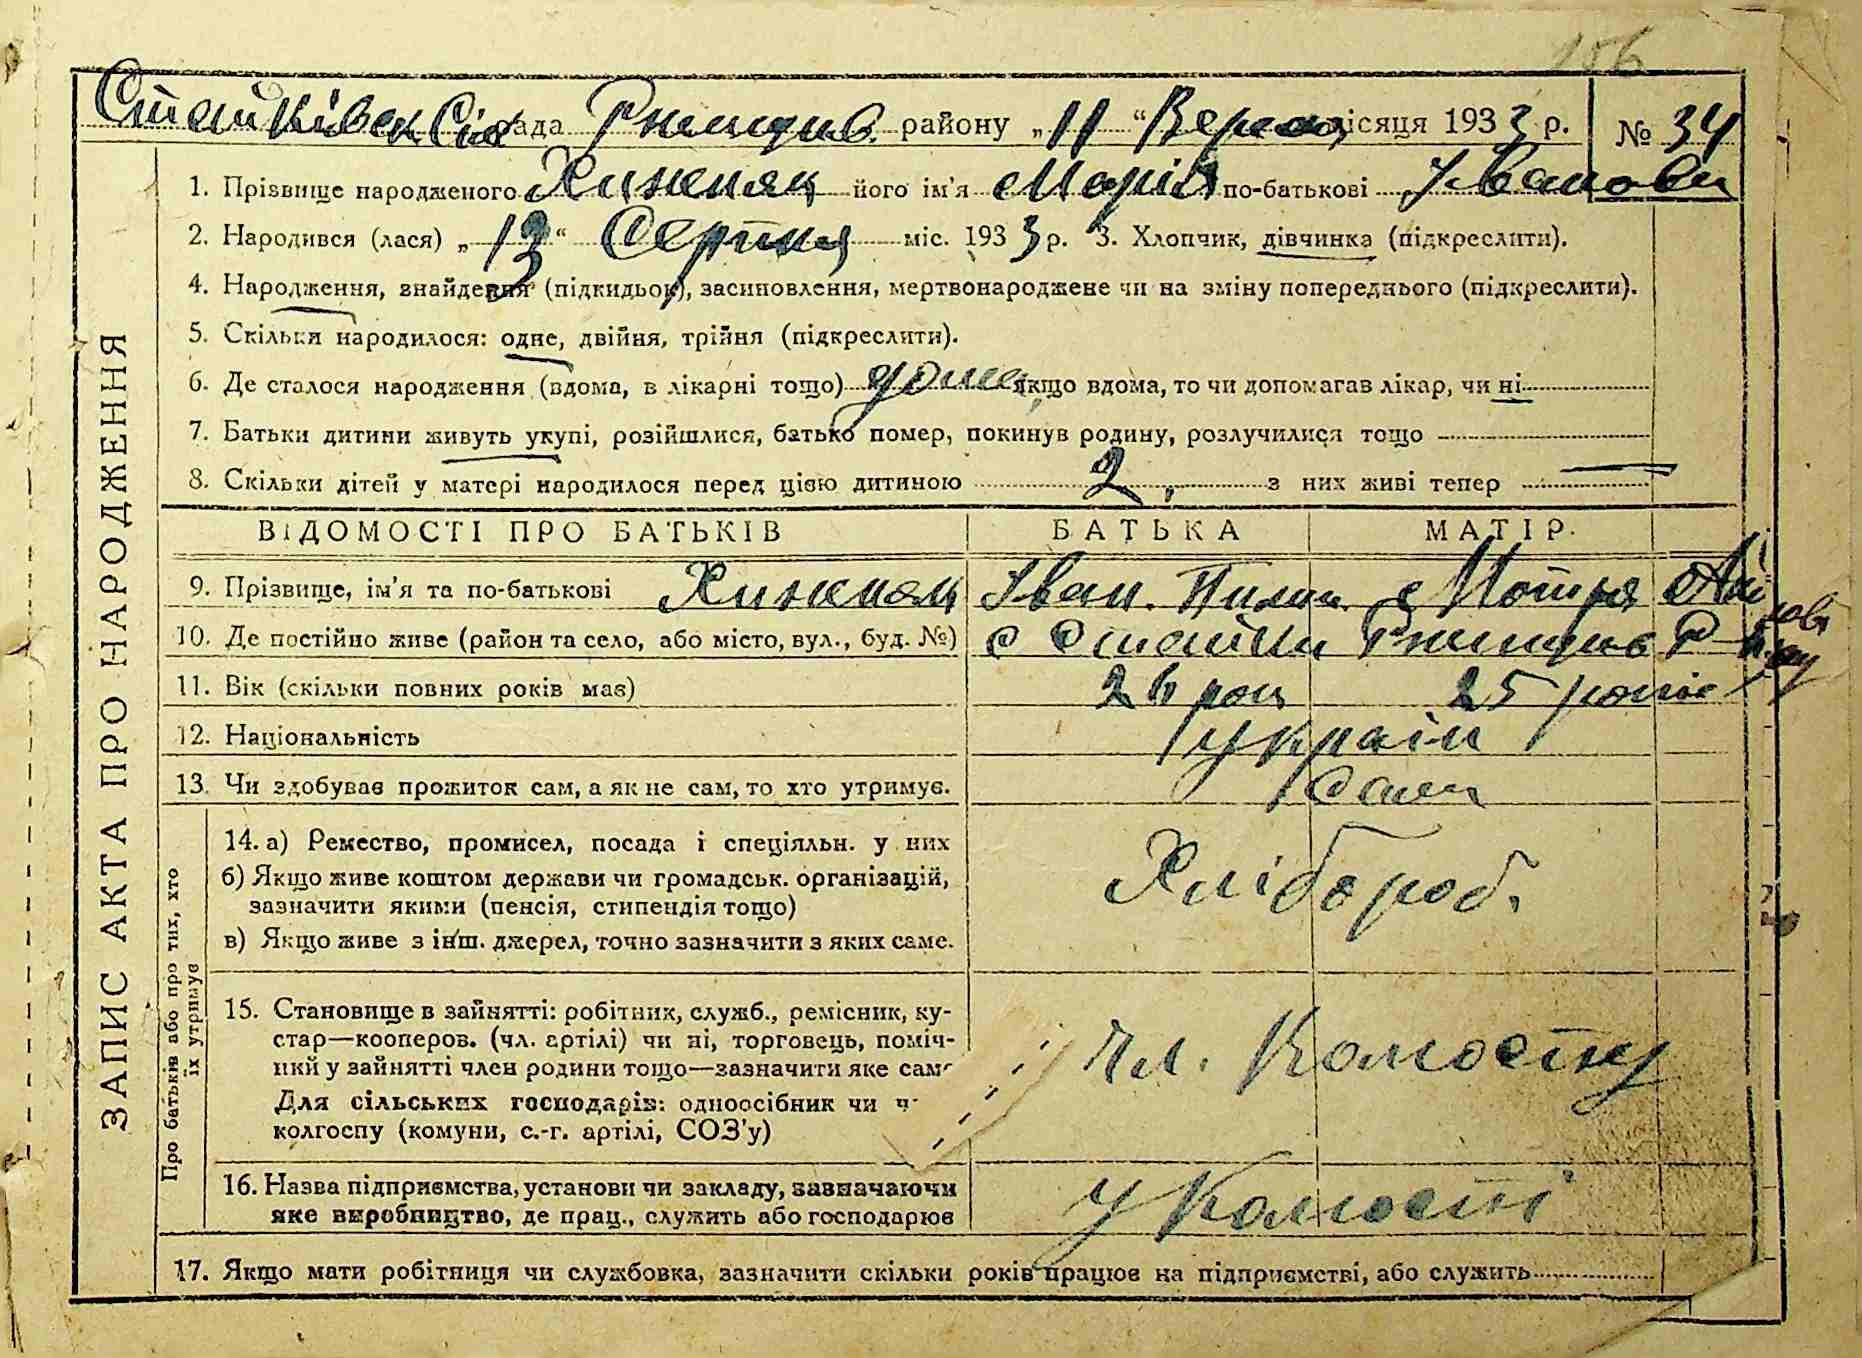 156
Стайківск Сіл рада Ржищив. району „11“ Верес місяця 1933 р. № 34
1. Прізвище народженого Хижняк його ім'я Марія по-батькові Іванови
2. Народився (лася) „13“ Серпня міс. 1933 р. 3. Хлопчик, дівчинка (підкреслити).
4. Народження, знайдення (підкидьок), засиновлення, мертвонароджене чи на зміну попереднього (підкреслити).
5. Скільки народилося: одне, двійня, трійня (підкреслити).
6. Де сталося народження (вдома, в лікарні тощо) дома якщо вдома, то чи допомагав лікар, чи ні
7. Батьки дитини живуть укупі, розійшлися, батько помер, покинув родину, розлучилися тощо
8. Скільки дітей у матері народилося перед цією дитиною 2, з них живі тепер —
ВІДОМОСТІ ПРО БАТЬКІВ БАТЬКА МАТІР
9. Прізвище, ім'я та по-батькові Хижняк Іван. Пилип. Мотря
10. Де постійно живе (район та село, або місто, вул., буд. №) с Стайки Ржищив Р-ну
11. Вік (скільки повних років має) 26 рок 25 років
12. Національність Україн
13. Чи здобував прожиток сам, а як не сам, то хто утримує. Сам
14. а) Ремество, промисел, посада і спеціяльн. у них
б) Якщо живе коштом держави чи громадськ. організацій,
зазначити якими (пенсія, стипендія тощо)
в) Якщо живе з інш. джерел, точно зазначити з яких саме.
Хлібороб.
15. Становище в зайнятті: робітник, служб., ремісник, ку-
стар—кооперов. (чл. артілі) чи ні, торговець, поміч-
ний у зайнятті член родини тощо—зазначити яке сам
Для сільських господарів: одноосібник чи ч
колгоспу (комуни, с.-г. артілі, СОЗ'у)
Чл. Колгоспу
16. Назва підприємства, установи чи закладу, зазначаючи
яке виробництво, де прац., служить або господарює
У Колгоспі
17. Якщо мати робітниця чи службовка, зазначити скільки років працює на підприємстві, або служить
ЗАПИС АКТА ПРО НАРОДЖЕННЯ
Про батьків або про тих, хто
їх утримує